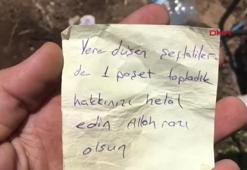 DHA
Yere düşen şeftaliler
de 1 poşet topladık
hakkınızı helal
edin Allah razı
olsun